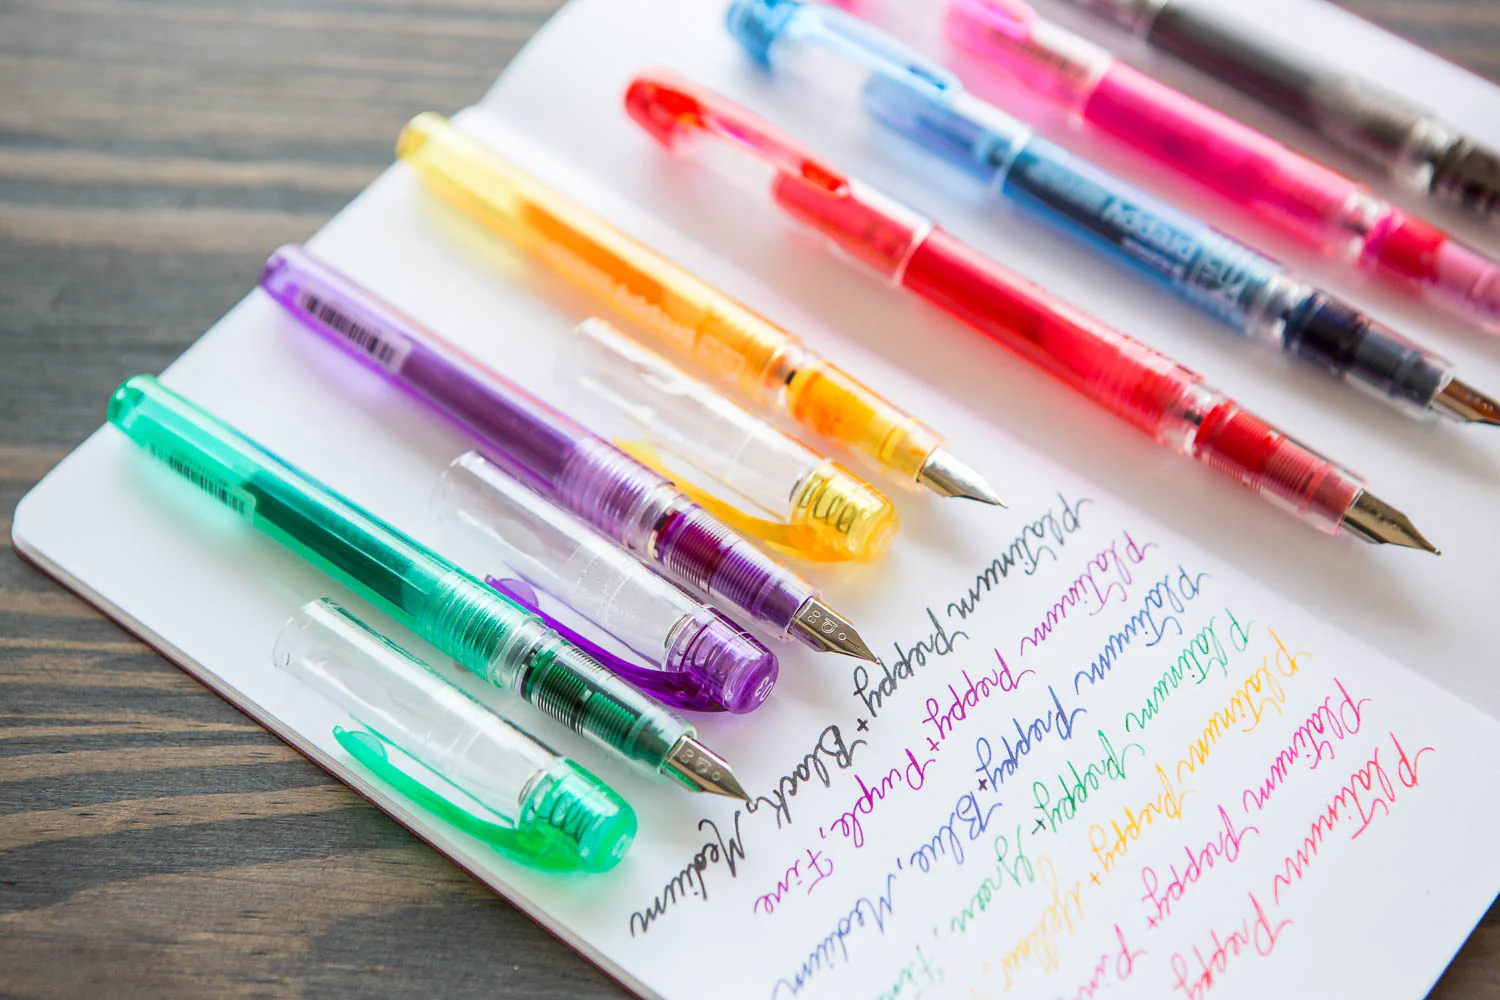 Platinum Preppy+ Black, Medium
Platinum Preppy+ Purple, Fine
Platinum Preppy+ Blue, Medium
Platinum Preppy+ Green, Fin
Platinum Preppy+ Yellow,
Platinum Preppy+ Pin
Platinum Preppy
preppy
03
03
03